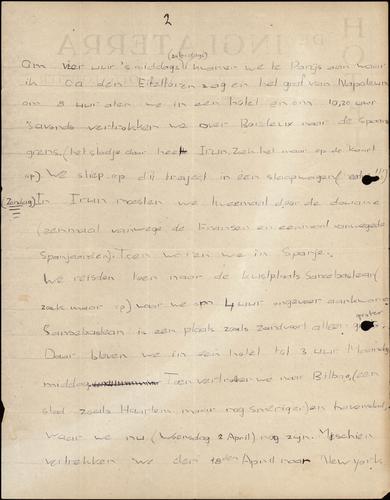 2
(zaterdags)
Om vier uur 's middags kwamen we te Parijs aan waar
ik o.a. den Eifeltoren zag en het graf van Napoleon
om 8 uur aten we in een hotel en om 10,20 uur
's avonds vertrokken we over Bordeux naar de Spaanse
grens. (het stadje daar heet Irun. Zoek het maar op de kaart
op) We sliep op dit traject in een slaapwagen
(Zondag) In Irun moesten we tweemaal door de douane
(eenmaal vanwege de Fransen en eenmaal vanwege de
Spanjaarden). Toen waren we in Spanje.
We reisden toen naar de kustplaats San Sebastean
(zoek maar op) waar we om 4 uur ongeveer aankwamen
San Sebastean is een plaats zoals Zandvoort alleen groter
Daar bleven we in een hotel tot 3 uur Maandag
middag Toen vertrokken we naar Bilbao, (een
stad zoals Haarlem maar nog smeriger) en havenstad,
waar we nu (Woensdag 2 April) nog zijn. Misschien
vertrekken we den 18den April naar New York